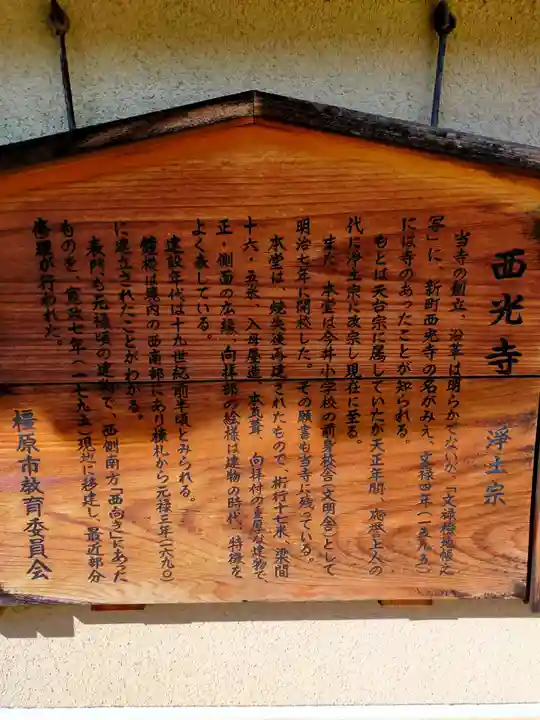 西光寺
浄土宗
当寺の創立、沿革は明らかでないが、「文禄検地帳之
写」に、新町西光寺の名がみえ、文禄四年(一五九五)
には寺のあったことが知られる。
もとは天台宗に属していたが天正年間、 上人の
代に浄土宗に改宗し現在に至る。
また、本堂は今井小学校の前身校舎(文明舎)として
明治七年に開校した。その願書も当寺に残っている。
本堂は、焼失後再建されたもので、桁行十七米、梁間
十六・五米、入母屋造、本瓦葺、向拝付の 建物で
正・側面の広縁、向拝部の絵様は建物の時代、特徴を
よく表している。
建設年代は十九世紀前半頃とみられる。
鐘楼は境内の西南部にあり棟札から元禄三年(一六九〇)
に建立されたことがわかる。
表門も元禄頃の建物で、西側南方「西向き」にあった
ものを、寛政七年(一七九五)現地に移建し、最近部分
修理が行われた。
橿原市教育委員会